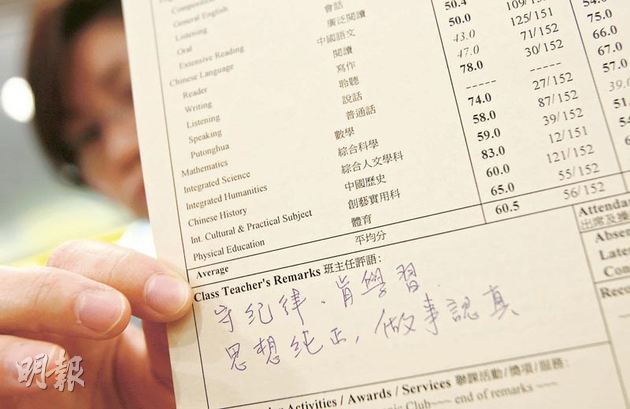 Composition
General English
Listening 會話
Oral 廣泛閱讀
Extensive Reading 中國語文 50.4
Chinese Language 閱讀 50.0 109/15
Reader 寫作 43.0 125/151
Writing 聆聽 47.0 71/152 75.0
Listening 說話 78.0 30/152 66.0
Speaking 普通話 ----- ----- 67.0
Putonghua 數學 74.0 27/152 57.0
Mathematics 綜合科學 58.0 87/152 39.
Integrated Science 綜合人文學科 59.0 39/152
Integrated Humanities 中國歷史 83.0 12/151
Chinese History 創藝實用科 60.0 121/152
Int. Cultural & Practical Subject 體育 65.0 55/152
Physical Education 平均分 60.5 56/152
Average
Class Teacher's Remarks 班主任評語:
守紀律、肯學習
思想純正，做事認真
Activities / Awards / Services 聯課活動 / 獎項 / 服務:
Club~~~ end of remarks ~~~
Attenda
出席及
Absen
Late
Reco
明報